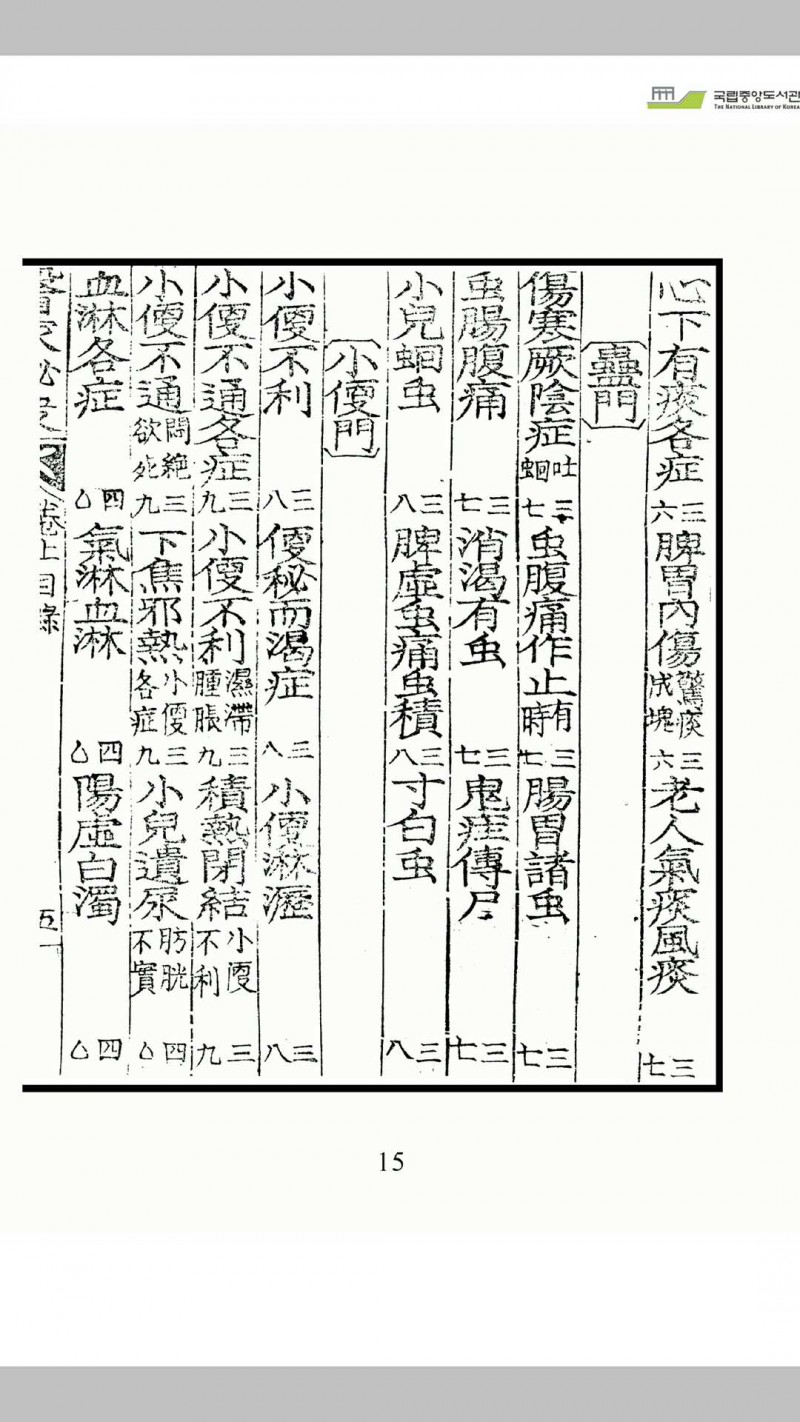 국립중앙도서관
THE NATIONAL LIBRARY OF KOREA
心下有痰各症 三六 脾胃內傷 驚痰成塊 三六 老人氣痰風痰 三七
〔蟲門〕
傷寒厥陰症 吐蛔 三七 虫腹痛作止 有時 三七 腸胃諸虫 三七
虫腸腹痛 三七 消渴有虫 三七 鬼疰傳尸 三七
小兒蛔虫 三八 脾虛虫痛虫積 三八 寸白虫 三八
〔小便門〕
小便不利 三八 便秘而渴症 三八 小便淋瀝 三八
小便不通各症 三九 小便不利 濕滯腫脹 三九 積熱閉結 小便不利 三九
小便不通 悶絶欲死 三九 下焦邪熱 小便各症 三九 小兒遺尿 肪胱不實 四〇
血淋各症 四〇 氣淋血淋 四〇 陽虛白濁 四〇
卷上目錄 五一
15